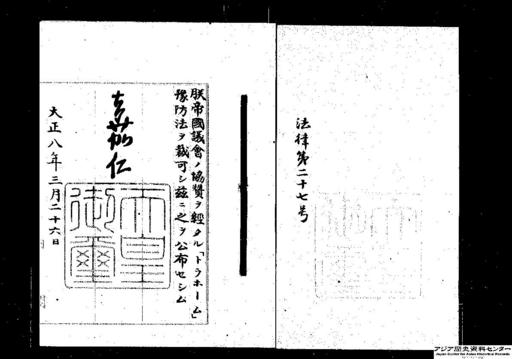 法律第二十七号
朕帝國議會ノ協賛ヲ經タル「トラホーム」
豫防法ヲ裁可シ茲ニ之ヲ公布セシム
嘉仁
天皇
御璽
大正八年三月二十六日
アジア歴史資料センター
Japan Center for Asian Historical Records